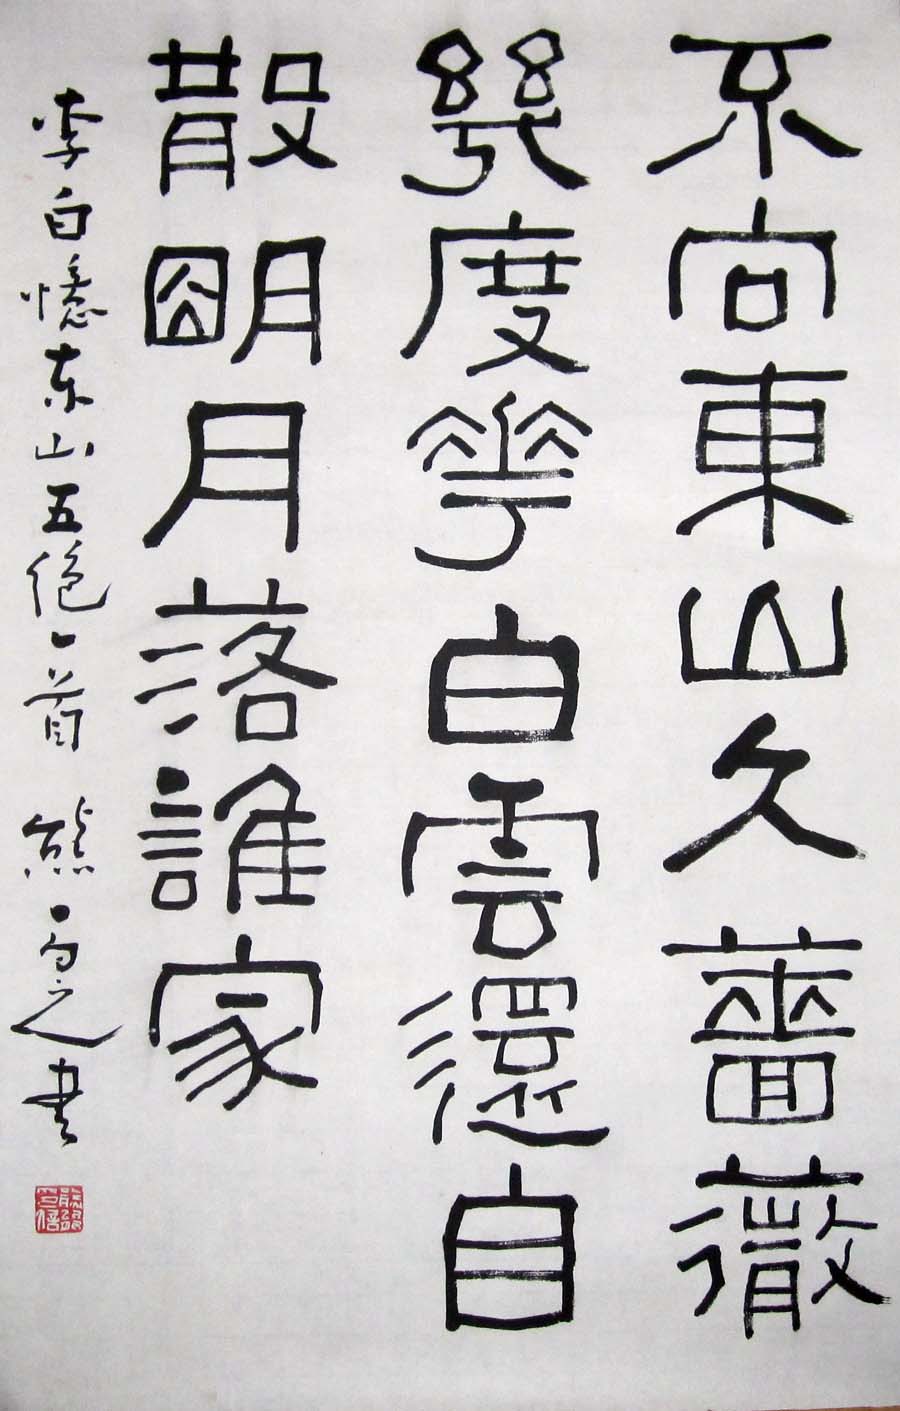 不向東山久薔薇
幾度花白雲還自
散朙月落誰家
李白憶东山五绝一首 熊 之书